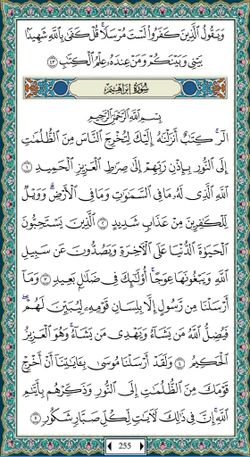 وَيَقُولُ الَّذِينَ كَفَرُوا لَسْتَ مُرْسَلًا قُلْ كَفَى بِاللَّهِ شَهِيدًا
بَيْنِي وَبَيْنَكُمْ وَمَنْ عِندَهُ عِلْمُ الْكِتَٰبِ ٤٣
سُورَةُ إِبْرَاهِيمَ
بِسْمِ اللَّهِ الرَّحْمَٰنِ الرَّحِيمِ
الٓر كِتَٰبٌ أَنزَلْنَٰهُ إِلَيْكَ لِتُخْرِجَ النَّاسَ مِنَ الظُّلُمَٰتِ
إِلَى النُّورِ بِإِذْنِ رَبِّهِمْ إِلَىٰ صِرَٰطِ الْعَزِيزِ الْحَمِيدِ ١
اللَّهِ الَّذِي لَهُ مَا فِي السَّمَٰوَٰتِ وَمَا فِي الْأَرْضِ وَوَيْلٌ
لِّلْكَٰفِرِينَ مِنْ عَذَابٍ شَدِيدٍ ٢ الَّذِينَ يَسْتَحِبُّونَ
الْحَيَوٰةَ الدُّنْيَا عَلَى الْآخِرَةِ وَيَصُدُّونَ عَن سَبِيلِ
اللَّهِ وَيَبْغُونَهَا عِوَجًا أُولَٰئِكَ فِي ضَلَٰلٍ بَعِيدٍ ٣ وَمَا
أَرْسَلْنَا مِن رَّسُولٍ إِلَّا بِلِسَانِ قَوْمِهِ لِيُبَيِّنَ لَهُمْ
فَيُضِلُّ اللَّهُ مَن يَشَاءُ وَيَهْدِي مَن يَشَاءُ وَهُوَ الْعَزِيزُ
الْحَكِيمُ ٤ وَلَقَدْ أَرْسَلْنَا مُوسَىٰ بِـَٔايَٰتِنَا أَنْ أَخْرِجْ
قَوْمَكَ مِنَ الظُّلُمَٰتِ إِلَى النُّورِ وَذَكِّرْهُم بِأَيَّىٰمِ
اللَّهِ إِنَّ فِي ذَٰلِكَ لَآيَٰتٍ لِّكُلِّ صَبَّارٍ شَكُورٍ ٥
255